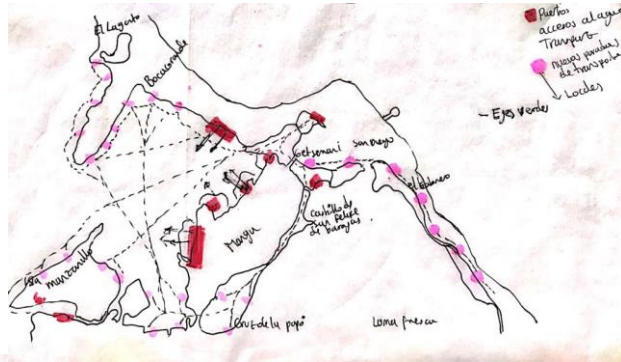 El Laguito
Bocagrande
Puertos
acceso al agua
Transporte
nuevas paradas
de transporte
Locales
Ejes verdes
Getsemani
San Diego
el Cabrero
Castillo de
San Felipe
de barajas
Manga
Isla
manzanillo
Cruz de la popa
Loma fresca